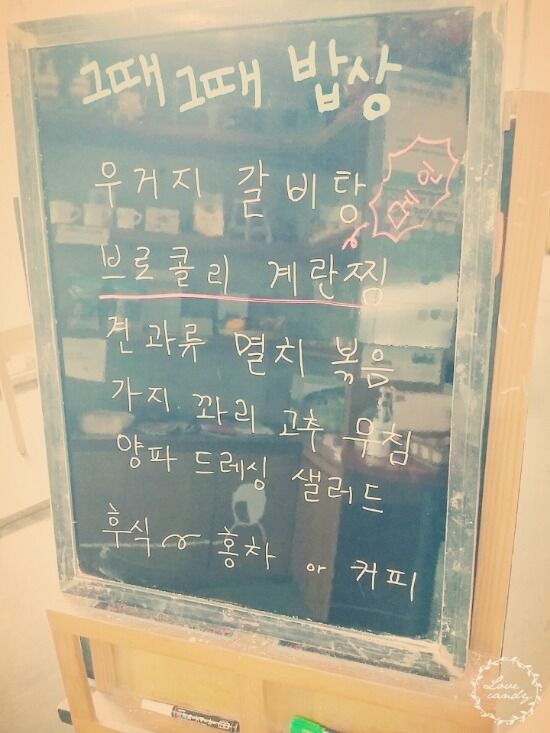 그때 그때 밥상
우거지 갈비탕
메인
브로콜리 계란찜
견과류 멸치 볶음
가지 꽈리 고추 무침
양파 드레싱 샐러드
후식~ 홍차 or 커피
Love
candy